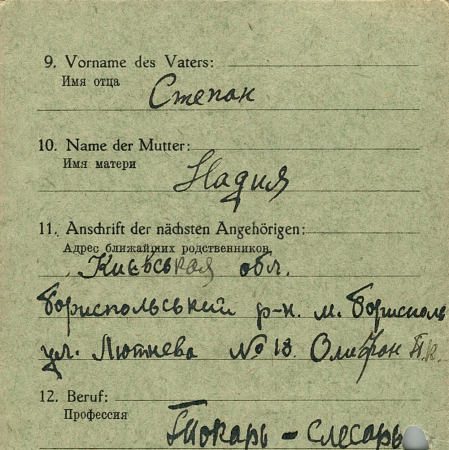 9. Vorname des Vaters:
Имя отца
Степан
10. Name der Mutter:
Имя матери
Надия
11. Anschrift der nächsten Angehörigen:
Адрес ближайших родственников
Киевськая обл.
Бориспольський р-н. м. Борисполь
ул. Лютнева № 18.
12. Beruf:
Профессия
Токарь - слесарь